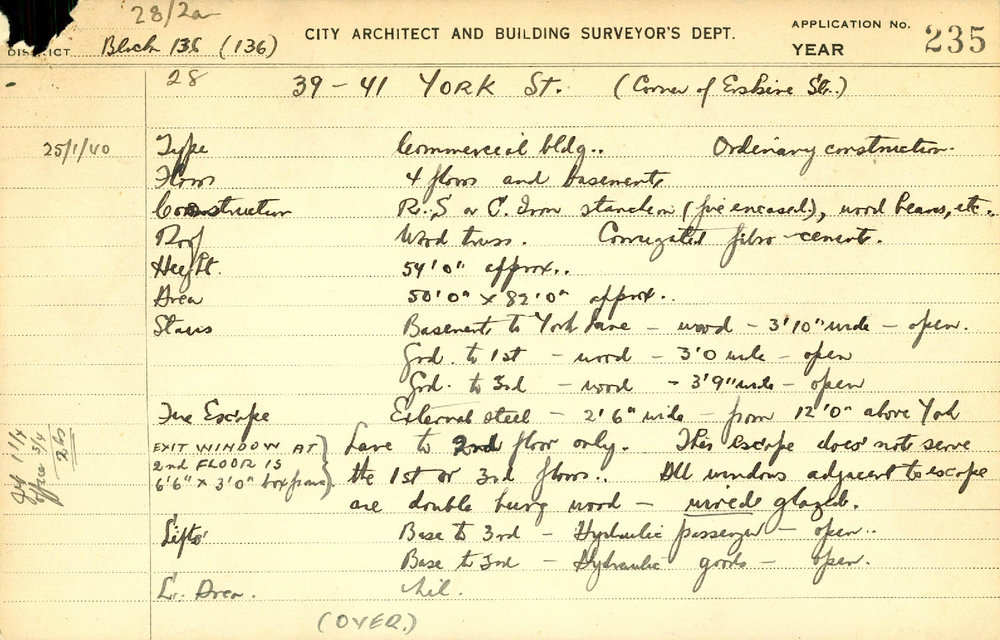 28/2a
DISTRICT Block 135 (136) CITY ARCHITECT AND BUILDING SURVEYOR'S DEPT. APPLICATION No. YEAR 235
28 39 - 41 YORK St. (Corner of Erskine St.)
25/1/40 Type Commercial bldg.. Ordinary construction.
Floors 4 floors and basement
Construction R.S or C. Iron stancheon (fire encased), wood beams, etc.
Roof Wood truss. Corrugated fibro-cement.
Height. 54'0" approx..
Area 50'0" x 82'0" approx..
Stairs Basement to York Lane - wood - 3'10" wide - open.
Grd. to 1st - wood - 3'0 wide - open
Grd. to 3rd - wood - 3'9" wide - open
Fire Escape External steel - 2'6" wide - from 12'0" above York
Lane to 2nd floor only. This escape does not serve
the 1st or 3rd floors.. All windows adjacent to escape
are double hung wood - wired glazed.
EXIT WINDOW AT
2nd FLOOR IS
6'6" x 3'0" box frame
Lifts Base to 3rd - Hydraulic passenger - open..
Base to 3rd - Hydraulic goods - open.
L. Area. Nil.
(OVER.)